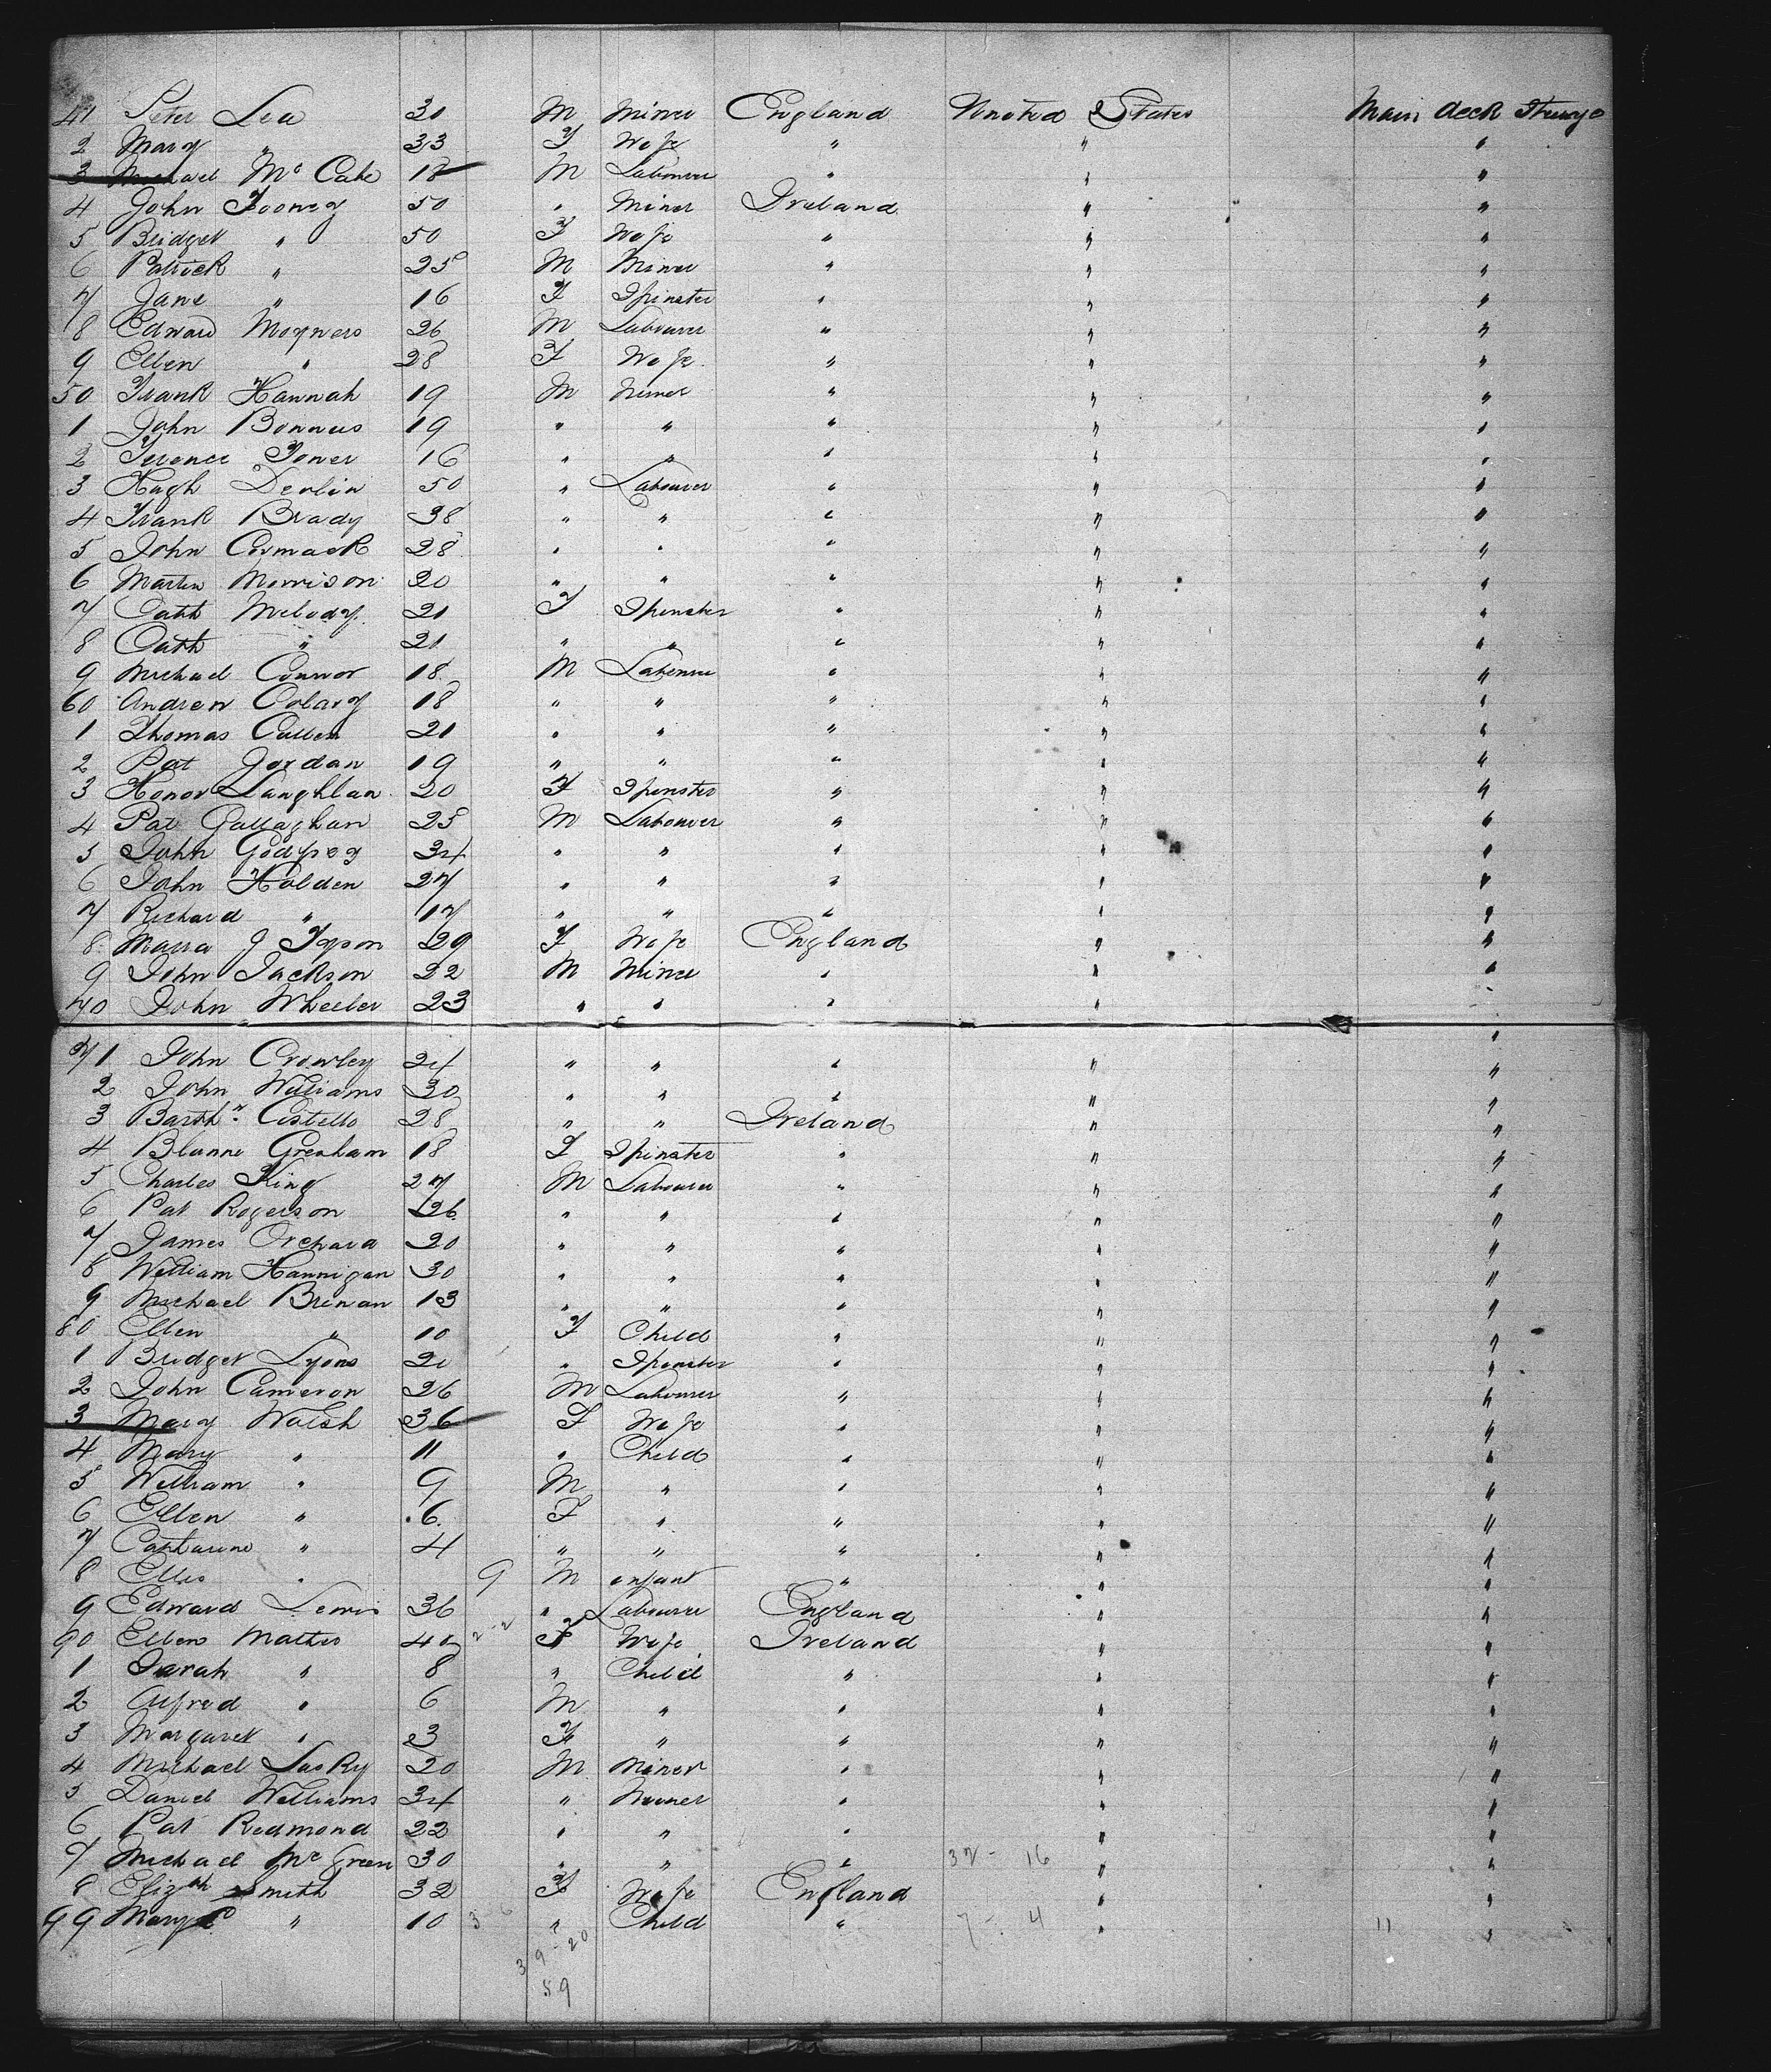 41 Peter Lea 30 M Miner England United States Main deck Steerage
2 Mary " 33 F Wife " " "
3 Michael Mc Cabe 18 M Labourer " " "
4 John Tooney 50 " Miner Ireland " "
5 Bridget " 50 F Wife " " "
6 Patrick " 25 M Miner " " "
7 Jane " 16 F Spinster " " "
8 Edward Moyners 26 M Labourer " " "
9 Ellen " 28 F Wife " " "
50 Frank Hannah 19 M Miner " " "
1 John Bonnus 19 " " " " "
2 Terence Toner 16 " " " " "
3 Hugh Devlin 50 " Labourer " " "
4 Frank Brady 38 " " " " "
5 John Cormack 28 " " " " "
6 Martin Morrison 20 " " " " "
7 Cath Melody 21 F Spinster " " "
8 Cath " 21 " " " " "
9 Michael Connor 18 M Labourer " " "
60 Andrew Colary 18 " " " " "
1 Thomas Cullen 21 " " " " "
2 Pat Jordan 19 " " " " "
3 Honor Laughlan 20 F Spinster " " "
4 Pat Gallaghan 25 M Labourer " " "
5 John Godfrey 34 " " " " "
6 John Holden 27 " " " " "
7 Richard " 17 " " " " "
8 J Tyson 29 F Wife England " "
9 John Jackson 22 M Miner " " "
70 John Wheeler 23 " " " " "
71 John Crowley 24 " " " " "
2 John Williams 30 " " " " "
3 Barthw Costello 28 " " Ireland " "
4 Gresham 18 F Spinster " " "
5 Charles King 27 M Labourer " " "
6 Pat Rogerson 26 " " " " "
7 James Orchard 20 " " " " "
8 William Hannigan 30 " " " " "
9 Michael Brenan 13 " " " " "
80 Ellen " 10 F Child " " "
1 Bridget Lyons 20 " Spinster " " "
2 John Cameron 26 M Labourer " " "
3 Mary Walsh 36 F Wife " " "
4 Mary " 11 " Child " " "
5 William " 9 M " " " "
6 Ellen " 6 F " " " "
7 Catharine " 4 " " " " "
8 Ellis " 9 M infant " " "
9 Edward Lewis 36 " Labourer England " "
90 Ellen Mather 40 2-2 F Wife Ireland " "
1 Sarah " 8 " Child " " "
2 Alfred " 6 M " " " "
3 Margaret " 3 F " " " "
4 Michael Lasky 20 M Miner " " "
5 Daniel Williams 34 " Miner " " "
6 Pat Redmond 22 " " " " "
7 Michael Mc Green 30 " " " 32 - 16 " "
8 Elizth Smith 32 F Wife England " "
99 Mary " 10 3 6 " Child " 7 - 4 " 11 "
39-20
59